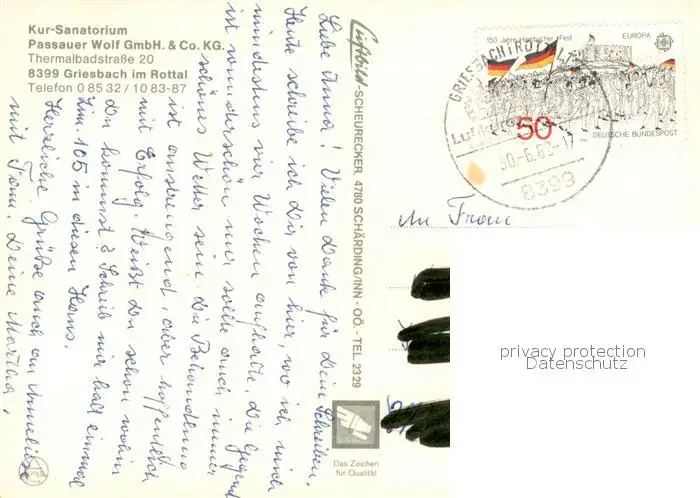 Kur-Sanatorium
Passauer Wolf GmbH. & Co. KG.
Thermalbadstraße 20
8399 Griesbach im Rottal
Telefon 0 85 32 / 10 83-87
Liebe Anna! Vielen Dank für Dein Schreiben.
Heute schreibe ich Dir von hier, wo ich mich
mindestens vier Wochen aufhalte. Die Gegend
ist wunderschön nur sollte auch immer
schönes Wetter sein. Die Behandlung
ist anstrengend, aber hoffentlich
mit Erfolg. Weißt Du schon wohin
Du kommst? Schreib mir halt einmal
Zim. 105 in diesen Haus.
Herzliche Grüße auch an Anneliese
mit Fam. Deine Martha.
Luftbild-SCHEURECKER, 4780 SCHÄRDING/INN - OÖ. - TEL. 23 29
Das Zeichen
für Qualität
150 Jahre Hambacher Fest
EUROPA
50
DEUTSCHE BUNDESPOST
GRIESBACH i ROTTAL
30.-6.82-17
8399
An Frau
privacy protection
Datenschutz